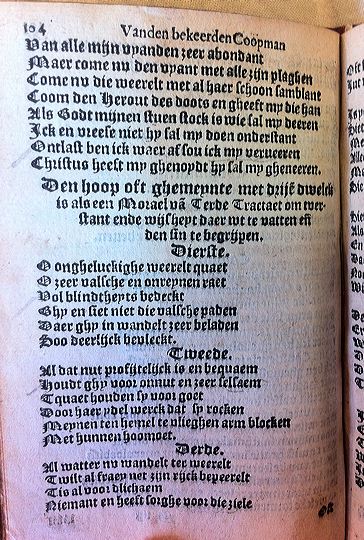 104 Vanden bekeerden Coopman
Van alle mijn vyanden zeer abondant
Maer come nv den vyant met alle zijn plaghen
Come nv die weerelt met al haer schoon samblant
Coom den Herout des doots en gheeft my die han
Als Godt mijnen stuen stock is wie sal my deeren
Ick en vreese niet hy sal my doen onderstant
Ontlast ben ick waer af sou ick my verueeren
Christus heeft my ghenoydt hy sal my gheneeren.
Den hoop oft ghemeynte met drijẽ dwelck
is als een Morael vã Terde Tractaet om tver-
stant ende wijsheyt daer wt te vatten eñ
den sin te begrijpen.
Dierste.
O ongheluckighe weerelt quaet
O zeer valsche en onreynen raet
Vol blindtheyts bedeckt
Ghy en siet niet die valsche paden
Daer ghy in wandelt zeer beladen
Soo deerlijck bevleckt.
Tweede.
Al dat nut profijtelijck is en bequaem
Houdt ghy voor onnut en zeer selsaem
Tquaet houden sy voor goet
Door haer ydel werck dat sy rocken
Meynen ten hemel te vlieghen arm blocken
Met hunnen hoomoet.
Derde.
Al watter nv wandelt ter weerelt
Twilt al fraey net zijn rijck bepeerelt
Tis al voor dlichaem
Niemant en heeft sorghe voor die ziele